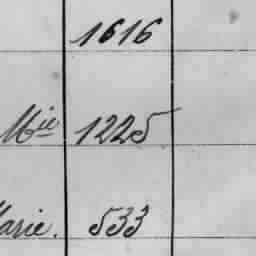 1616
Mie 1225
Marie. 533